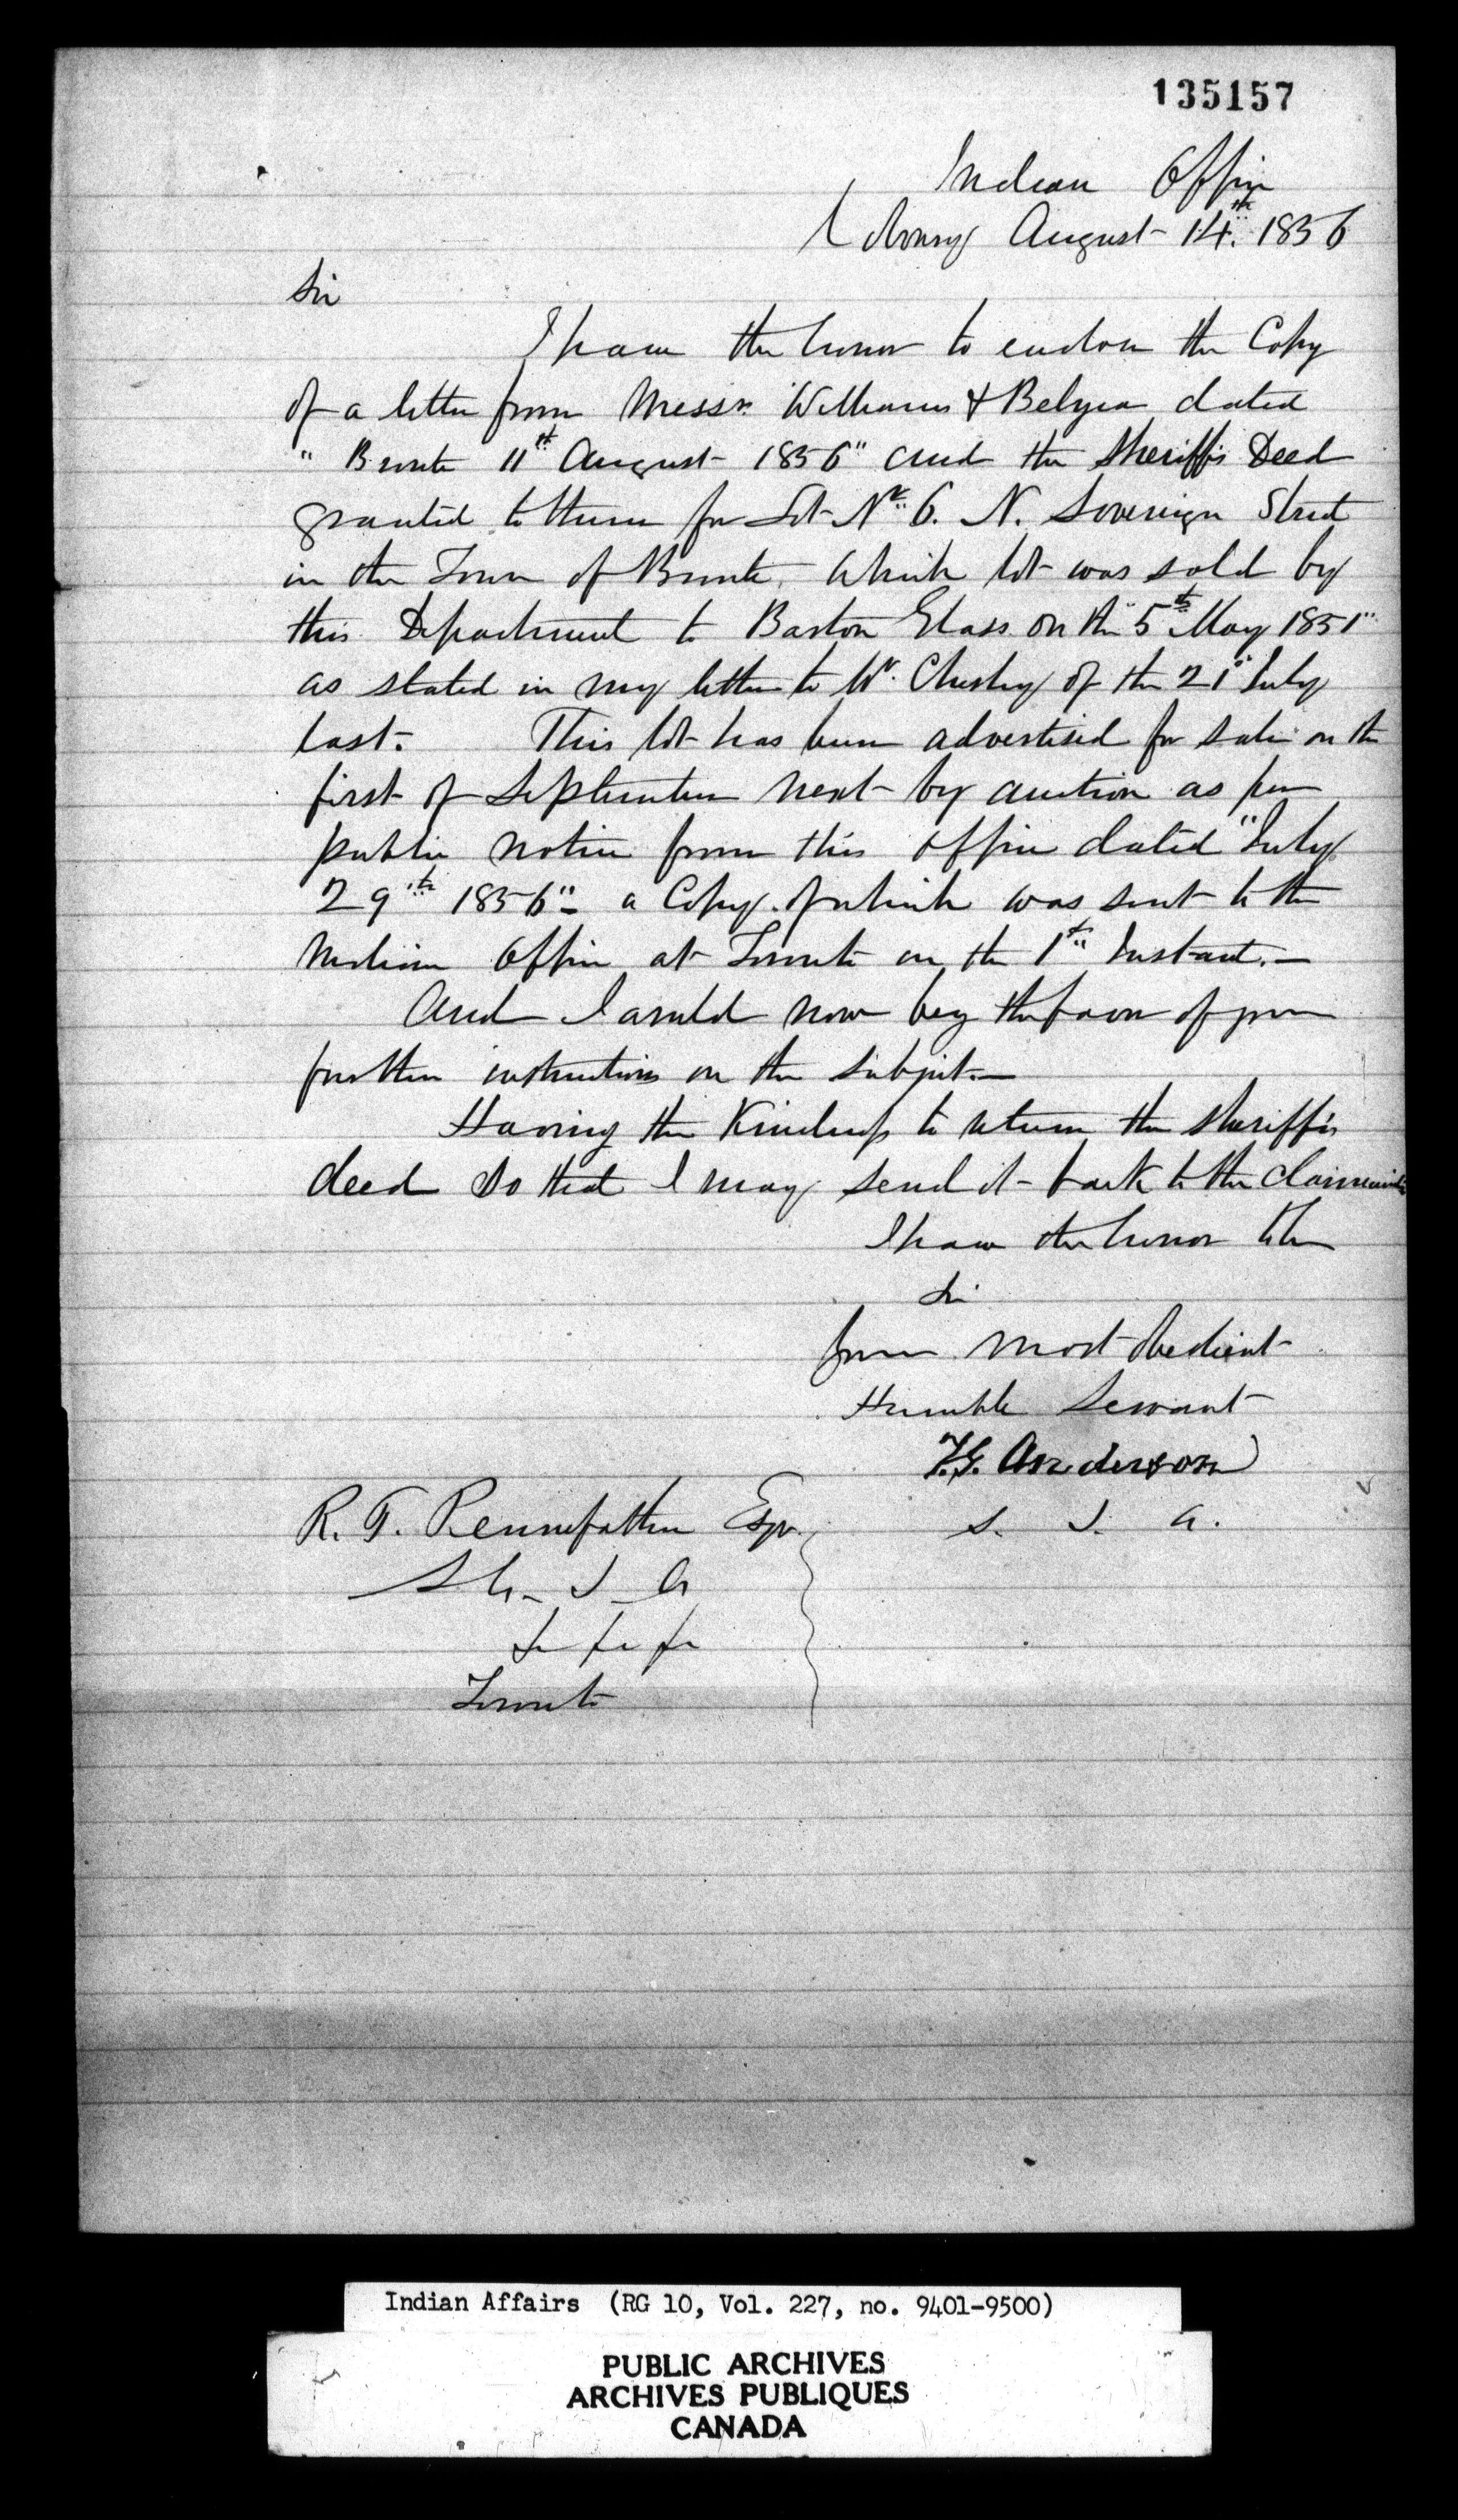 135157
Indian Office
Cobourg August 14th. 1856
Sir
I have the honor to enclose the Copy
of a letter from Messrs. Williams & Belyea dated
" Bronte 11th August 1856" and the Sheriff's Deed
granted to them for Lot No. 6. N. Sovereign Street
in the Town of Bronte, which lot was sold by
this Department to Barton Glass on the "5th May 1851"
as stated in my letter to Mr. Chesley of the 21st July
last. This lot has been advertised for sale on the
first of September next by auction as per
public notice from this office dated "July
29th 1856" a Copy of which was sent to the
Indian Office at Toronto on the 1st Instant.
And I would now beg the favor of your
further instructions on the subject.
Having the Kindness to return the Sheriff's
deed so that I may send it back to the claimants
I have the honor to be
Sir
Your most obedient
Humble Servant
T.G. Anderson
S. I. A.
R. T. Pennefather Esqr.
S G I A
&c &c &c
Toronto
Indian Affairs (RG 10, Vol. 227, no. 9401-9500)
PUBLIC ARCHIVES
ARCHIVES PUBLIQUES
CANADA